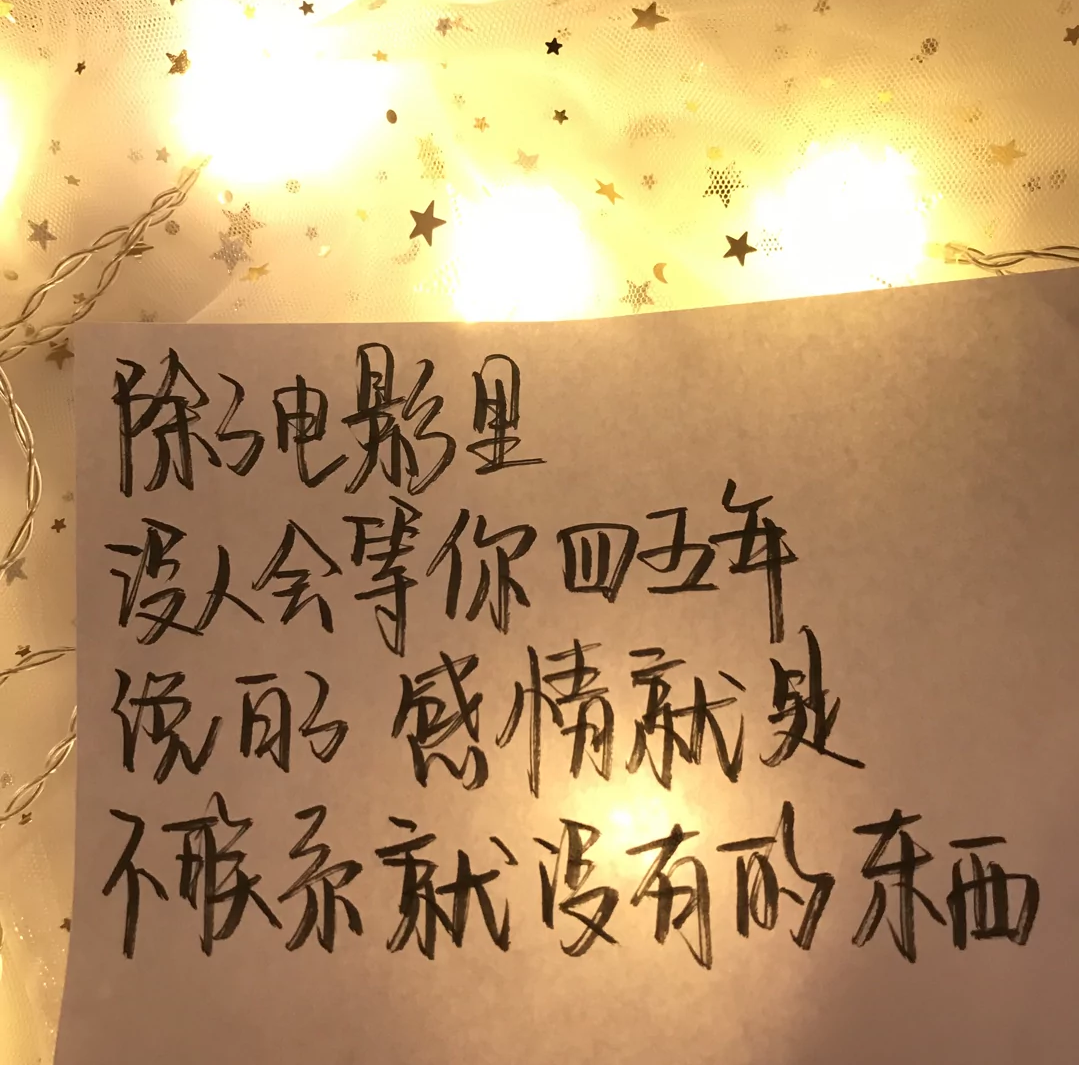 除了电影里
没人会等你四五年
说白了 感情就是
不联系就没有的东西